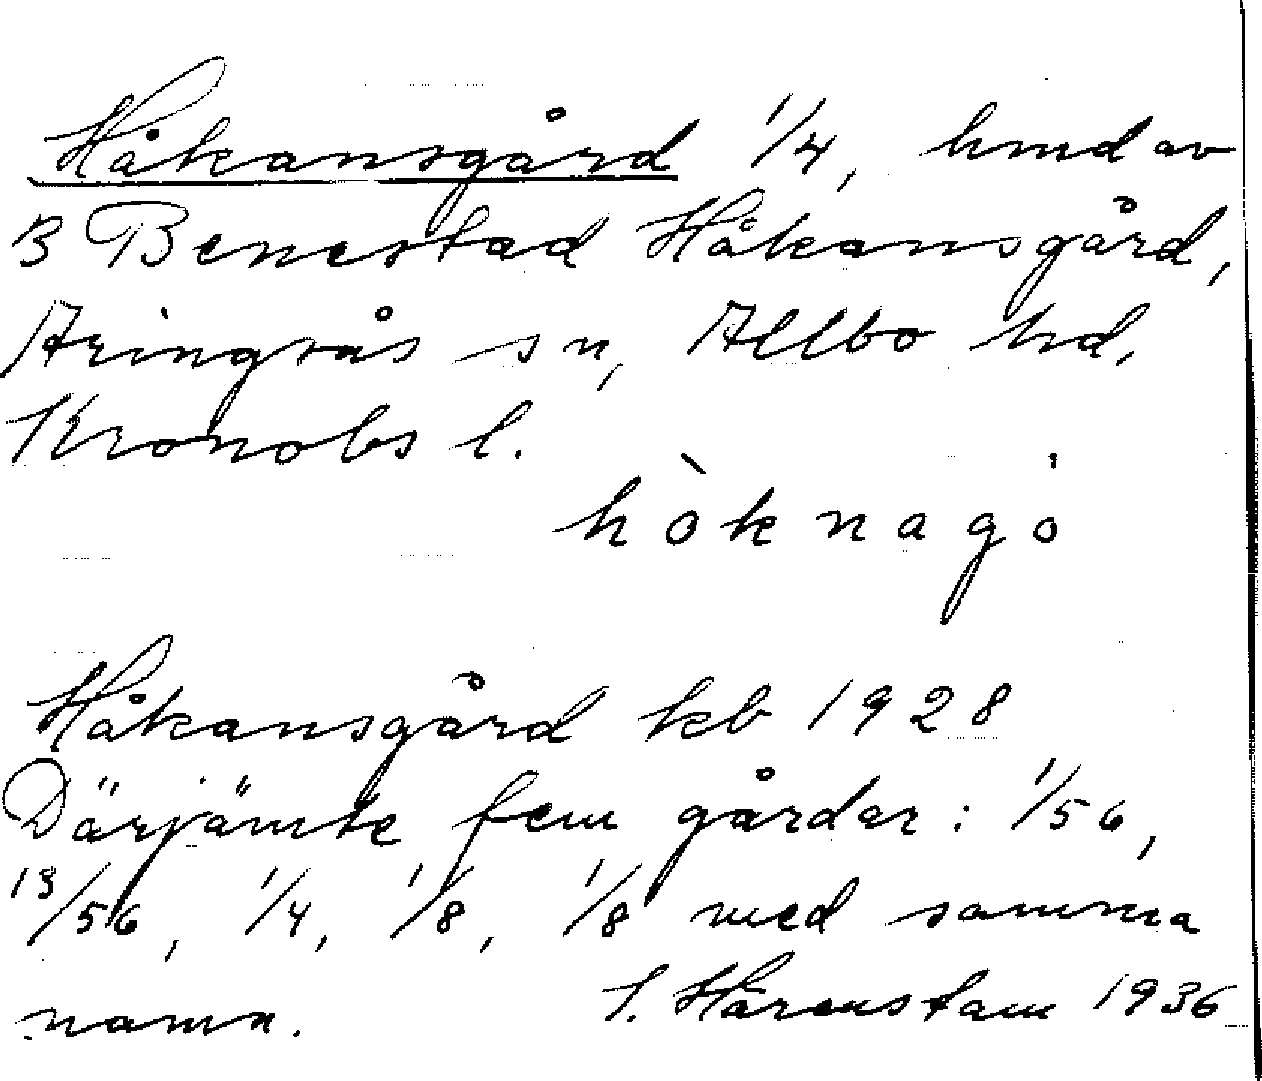 Håkansgård 1/4, hmd av
3 Benestad Håkansgård,
Aringsås sn, Allbo hd.
Kronobs l.
hòknagȯ
Håkansgård kb 1928
Därjämte fem gårdar: 1/56,
13/56, 1/4, 1/8, 1/8 med samma
namn. I. Hårenstam 1936